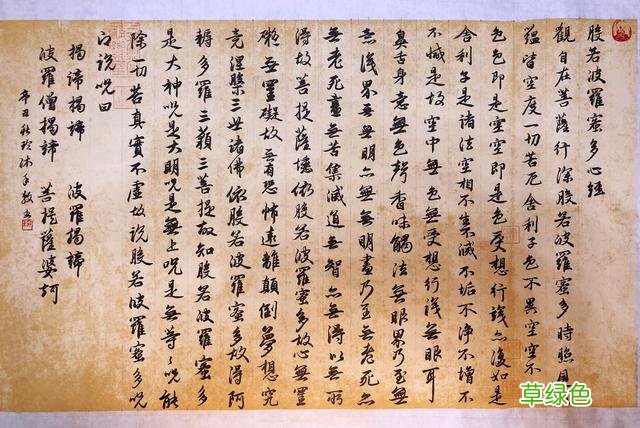 般若波羅蜜多心經
觀自在菩薩行深般若波羅蜜多時照見
蘊皆空度一切苦厄舍利子色不異空空不
色色即是空空即是色受想行識亦復如是
舍利子是諸法空相不生滅不垢不淨不增不
不減是故空中無色無受想行識無眼耳
鼻舌身意無色聲香味觸法無眼界乃至無
意識界無無明亦無無明盡乃至無老死亦
無老死盡無苦集滅道無智亦無得以無所
得故菩提薩埵依般若波羅蜜多故心無罣
礙無罣礙故無有恐怖遠離顛倒夢想究
竟涅槃三世諸佛依般若波羅蜜多故得阿
耨多羅三藐三菩提故知般若波羅蜜多
是大神咒是大明咒是無上咒是無等〻咒能
除一切苦真實不虛故說般若波羅蜜多咒
即說咒曰
揭諦揭諦 波羅揭諦
波羅僧揭諦 菩提薩婆訶
辛丑秋沐手敬書
草绿色